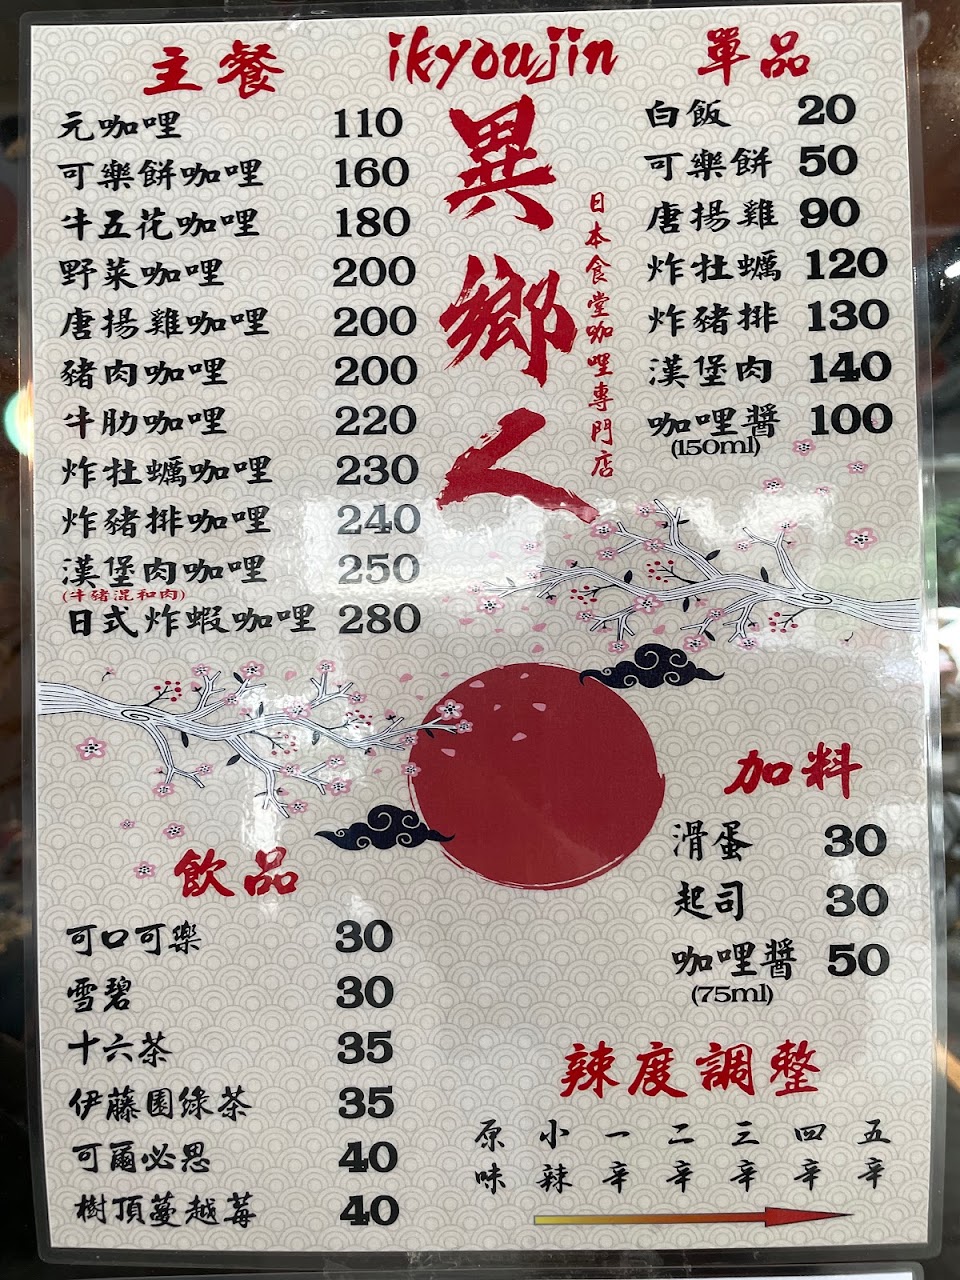 ikyoujin
異鄉人
日本食堂咖哩專門店
主餐
元咖哩 110
可樂餅咖哩 160
牛五花咖哩 180
野菜咖哩 200
唐揚雞咖哩 200
豬肉咖哩 200
牛肋咖哩 220
炸牡蠣咖哩 230
炸豬排咖哩 240
漢堡肉咖哩 250
(牛豬混和肉)
日式炸蝦咖哩 280
單品
白飯 20
可樂餅 50
唐揚雞 90
炸牡蠣 120
炸豬排 130
漢堡肉 140
咖哩醬 100
(150ml)
飲品
可口可樂 30
雪碧 30
十六茶 35
伊藤園綠茶 35
可爾必思 40
樹頂蔓越莓 40
加料
滑蛋 30
起司 30
咖哩醬 50
(75ml)
辣度調整
原味 小辣 一辛 二辛 三辛 四辛 五辛